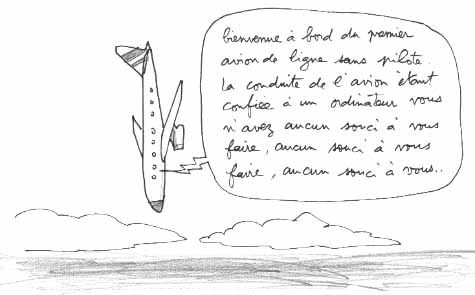 bienvenue à bord du premier
avion de ligne sans pilote.
la conduite de l'avion étant
confiée à un ordinateur vous
n'avez aucun souci à vous
faire, aucun souci à vous
faire, aucun souci à vous..